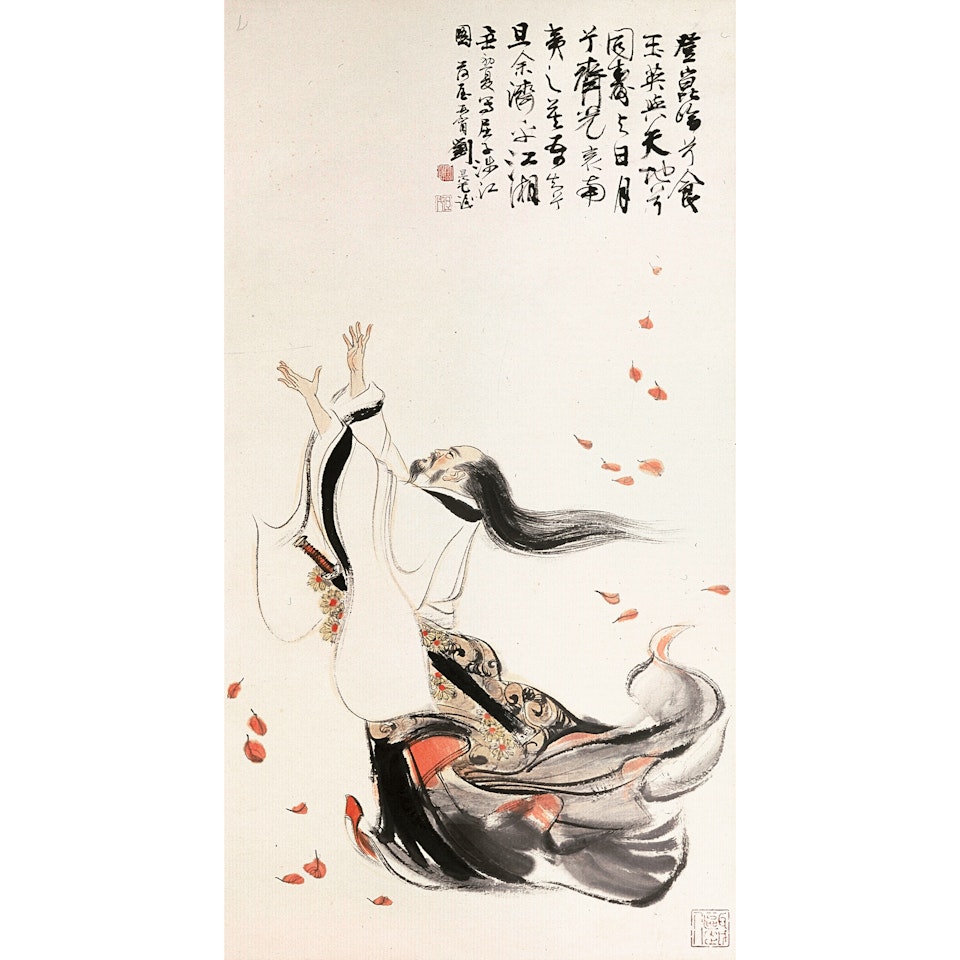 登崑崙兮食
玉英與天地兮
同壽与日月
兮齊光哀南
夷之莫吾知兮
旦余濟乎江湘
初夏寫屈子涉江
圖 劉旦宅